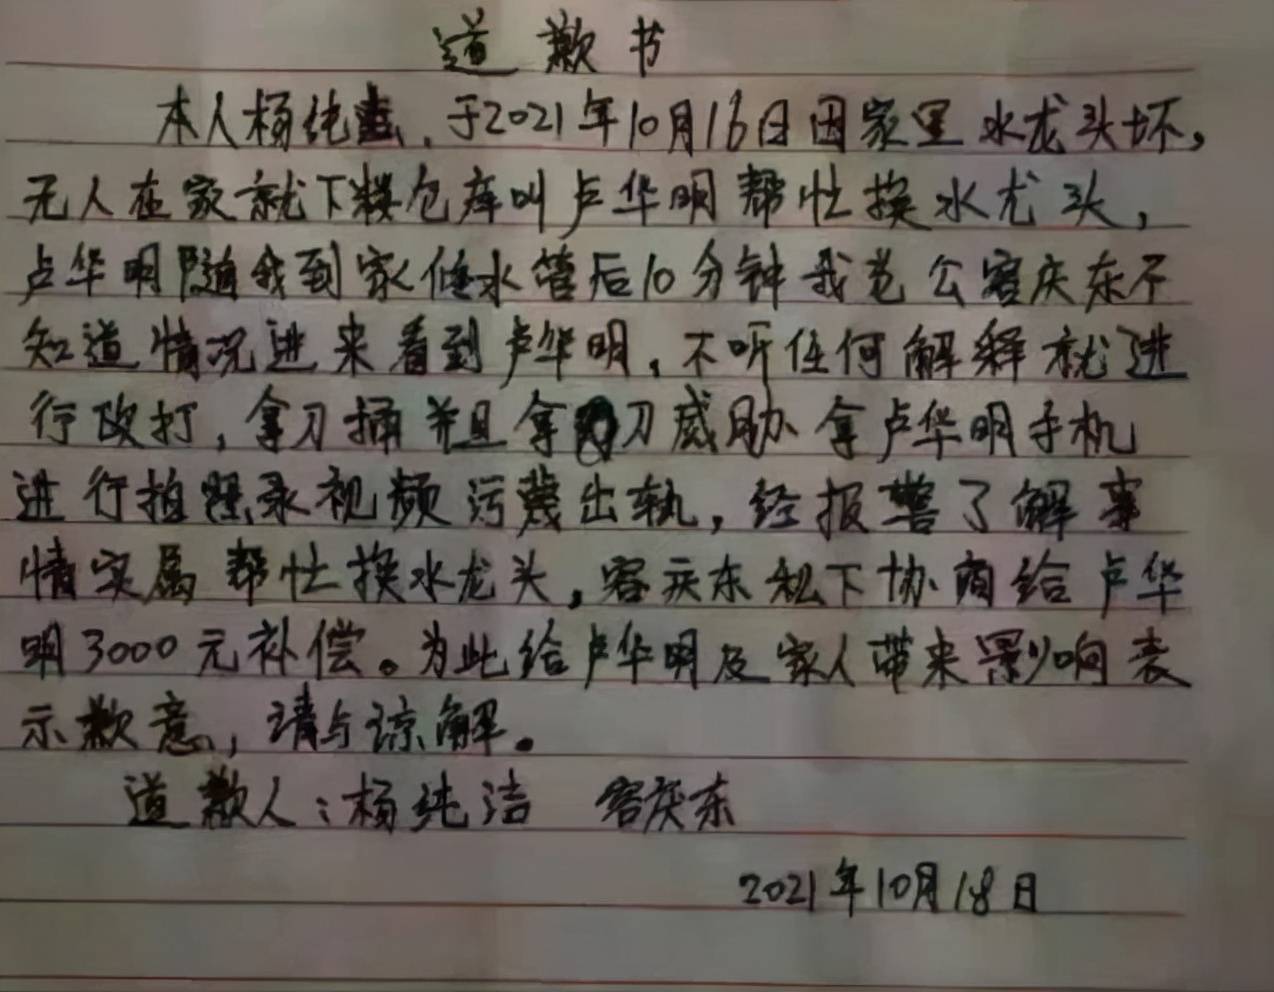 道歉书
本人杨纯洁,于2021年10月16日因家里水龙头坏,
无人在家就下楼仓库叫卢华明帮忙换水龙头,
卢华明随我到家修水管后10分钟我老公容庆东不
知道情况进来看到卢华明,不听任何解释就进
行攻打,拿刀捅并且拿刀威胁拿卢华明手机
进行拍照录视频污蔑出轨,经报警了解事
情实属帮忙换水龙头,容庆东私下协商给卢华
明3000元补偿。为此给卢华明及家人带来影响表
示歉意,请与谅解。
道歉人:杨纯洁 容庆东
2021年10月18日